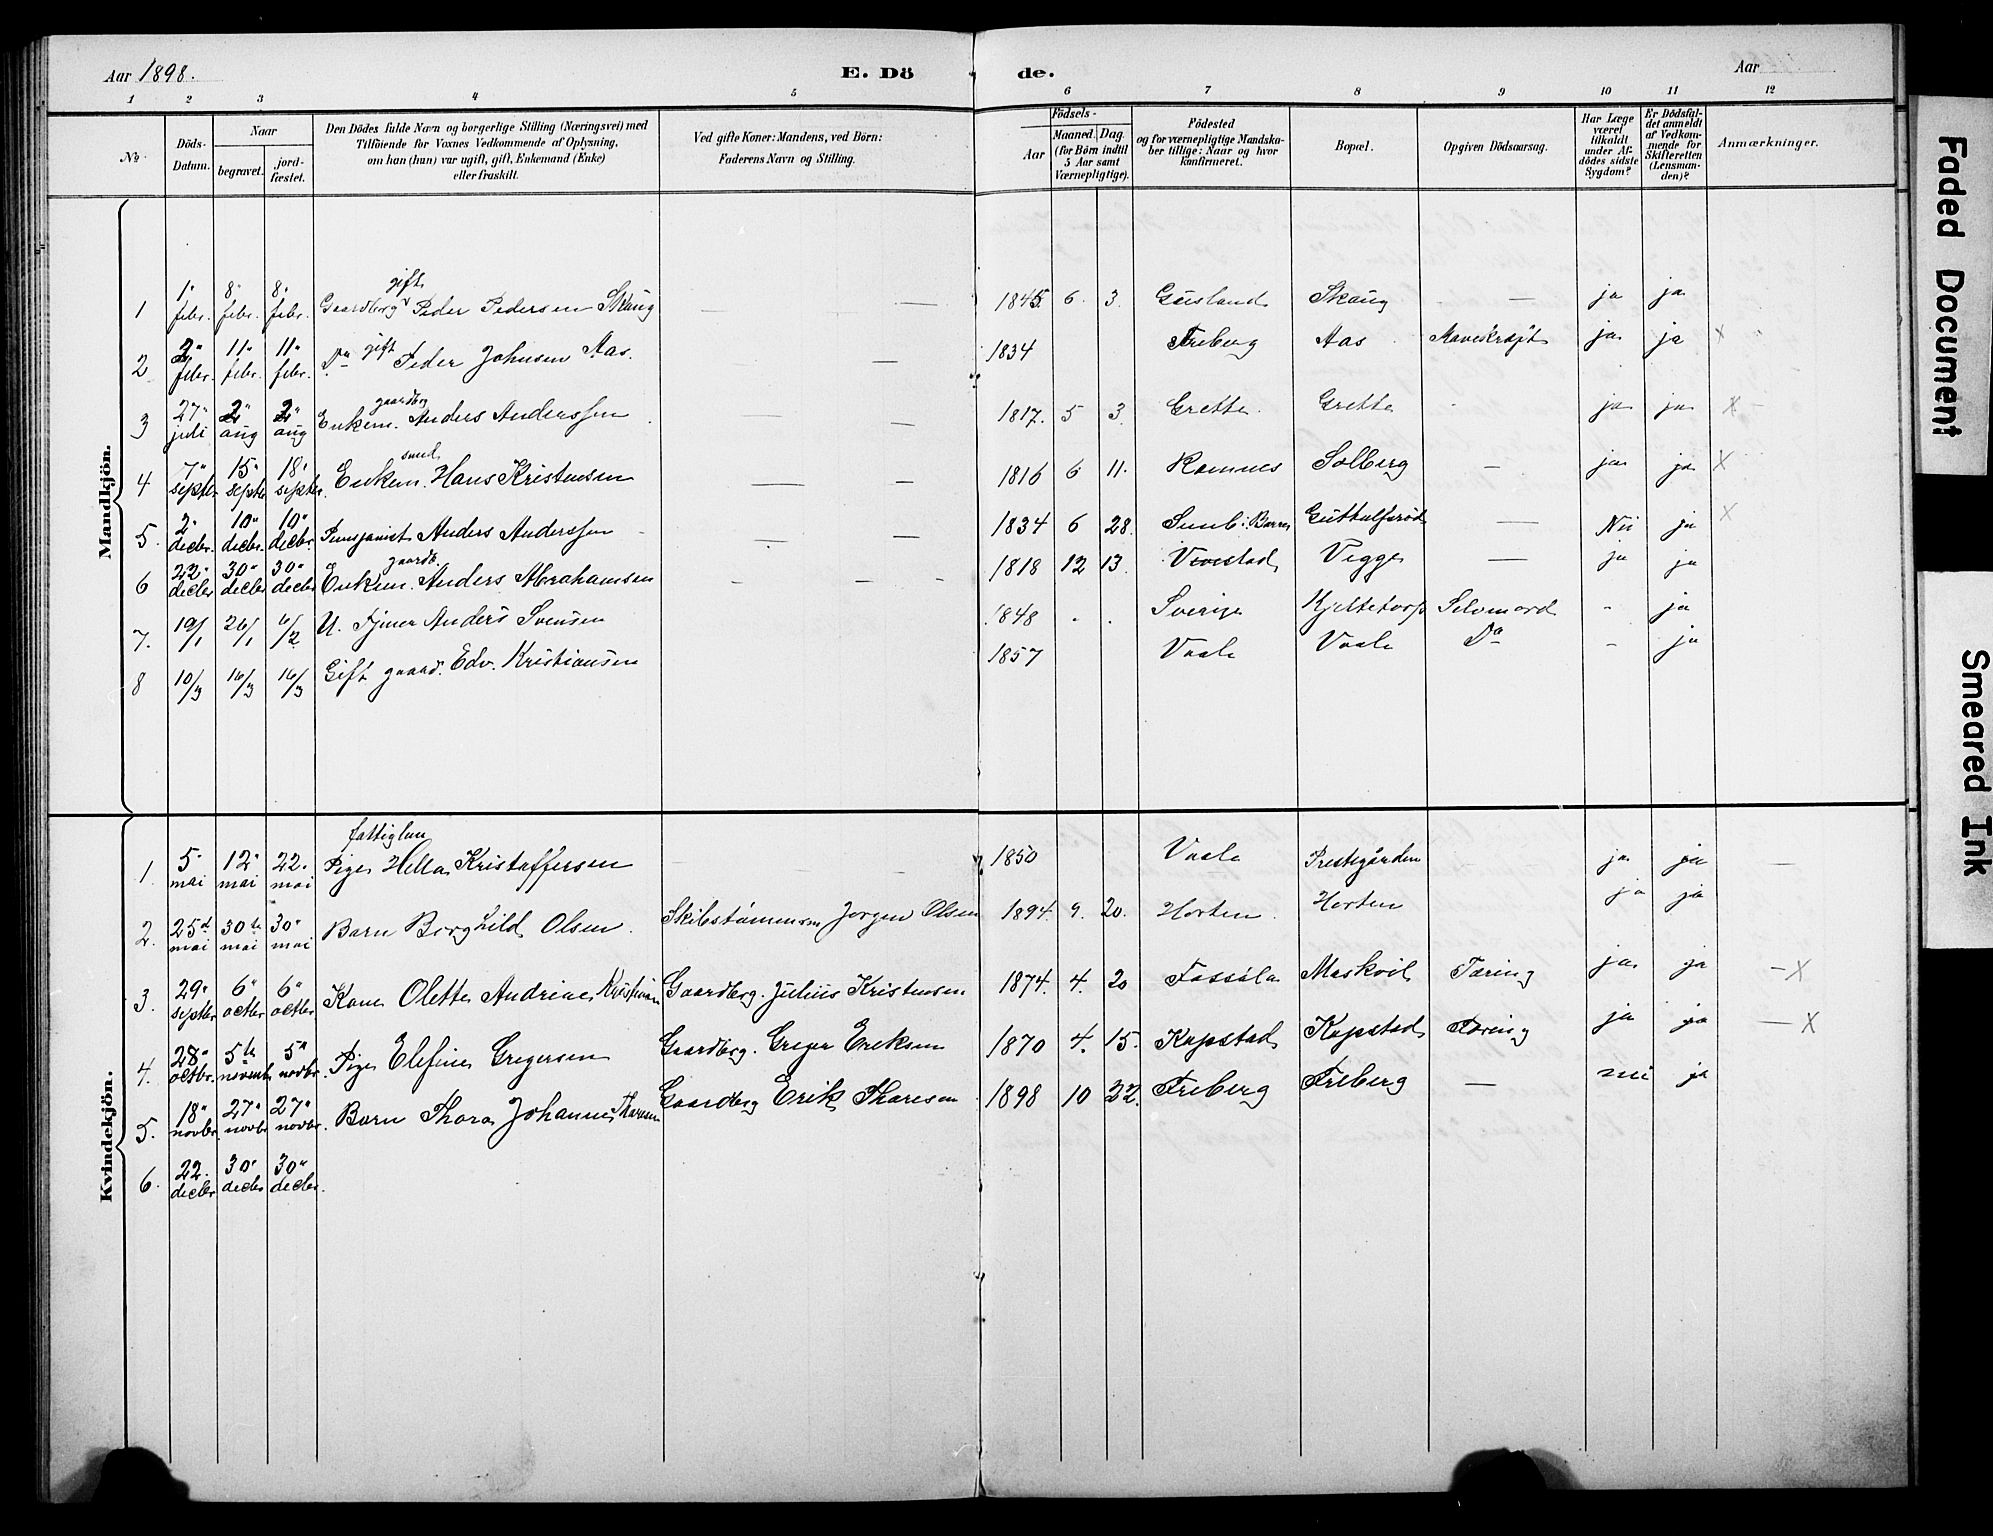 Aar 1898. E. Dö de. Aar
1 2 3 4 5 6 7 8 9 10 11 12
No
Döds-Datum.
Naar begravet. jord-fæstet.
Den Dödes fulde Navn og borgerlige Stilling (Næringsvei) med
Tilföiende for Voxnes Vedkommende af Oplysning,
om han (hun) var ugift, gift, Enkemand (Enke)
eller fraskilt.
Ved gifte Koner: Mandens, ved Börn:
Faderens Navn og Stilling.
Födsels-
Aar Maaned. Dag.
(for Börn indtil
5 Aar samt
Værnepligtige).
Födested
og for værnepligtige Mandska-
ber tillige: Naar og hvor
konfirmeret.
Bopæl.
Opgiven Dödsaarsag.
Har Læge
været
tilkaldt
under Af-
dödes sidste
Sygdom?
Er Dödsfal-
det anmeldt
af Vedkom-
mende for
Skifteretten
(Lensman-
den)?
Anmærkninger.
Mandkjön.
1 1" febr. 8" febr. 8" febr. Gaardbrg gift Peder Pedersen Skaug — — 1845 6. 3. Gusland Skaug — ja ja
2 2" febr. 11" febr. 11" febr. Do gift Peder Johnsen Aas. — 1834 Freberg Aas Mavekræft ja ja x
3 27" juli 2" aug 2" aug Enkem. gaardbrg Anders Anderssen — — 1817. 5 3. Grette Grette ja ja x
4 7" septbr 15" septbr 18" septbr. Enkem. smed Hans Kristensen — — 1816 6 11. Ramnes Solberg — ja ja x
5. 2" decbr. 10" decbr. 10" decbr. Pensjonist Anders Anderssen — — 1834 6 28. Borre — Nei ja x
6 22" decbr 30" decbr 30" decbr Enkem. gaardb. Anders Abrahamsen — — — 1818 12 13. Vivestad Vegge — ja ja
7. 19/1 26/1 6/2 U. Tjener Anders Svensen 1848 . . Sverige Kjeltetorp Selvmord - ja
8 10/3 16/3 16/3 Gift gaard. Edv. Kristiansen 1857 Vaale Vaale Do - ja
Kvindekjön.
1. 5" mai 12" mai 22. mai Pige fattiglem Hella Kristoffersen — — 1850 Vaale Prestegården ja ja —
2. 25d mai 30te mai 30" mai Barn Borghild Olsen. Skibstømmerm Jørgen Olsen 1894. 9. 20. Horten. Horten ja ja
3. 29" septbr. 6" octbr 6" octbr Kone Olette Andrine Kristensen Gaardbrg. Julius Kristensen 1874. 4. 20 Fossola Maskvil Tæring ja ja — x
4. 28" octbr. 5te novemb 5" novbr. Pige Elefine Gregersen Gaardbrg. Greger Eriksen 1870 4. 15. Kapstad Kapstad Tæring ja ja — x
5. 18" novbr. 27" novbr. 27" novbr. Barn Thora Johanne Thoresen Gaardbrg Erik Thoresen 1898 10 22. Freberg Freberg — nei ja
6. 22. decbr. 30" decbr 30" decbr.
Faded Document
Smeared Ink